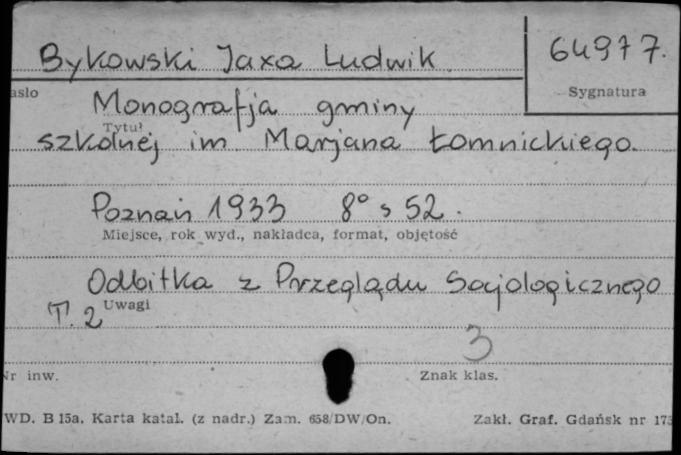 Bykowski Jaxa Ludwik
64977.
asło
Sygnatura
Monografja gminy
Tytuł
szkolnej im Marjana Łomnickiego.
Poznań 1933 8° s 52.
Miejsce, rok wyd., nakładca, format, objętość
Odbitka z Przeglądu Socjologicznego
Uwagi
T. 2
3
Nr inw.
Znak klas.
WD. B 15a. Karta katal. (z nadr.) Zam. 658/DW/On.
Zakł. Graf. Gdańsk nr 173